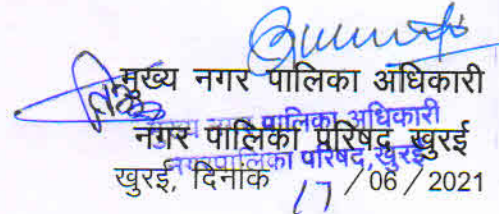 मुख्य नगर पालिका अधिकारी
मुख्य नगर पालिका अधिकारी
नगर पालिका परिषद खुरई
नगरपालिका परिषद, खुरई
खुरई, दिनांक 17 / 06 / 2021